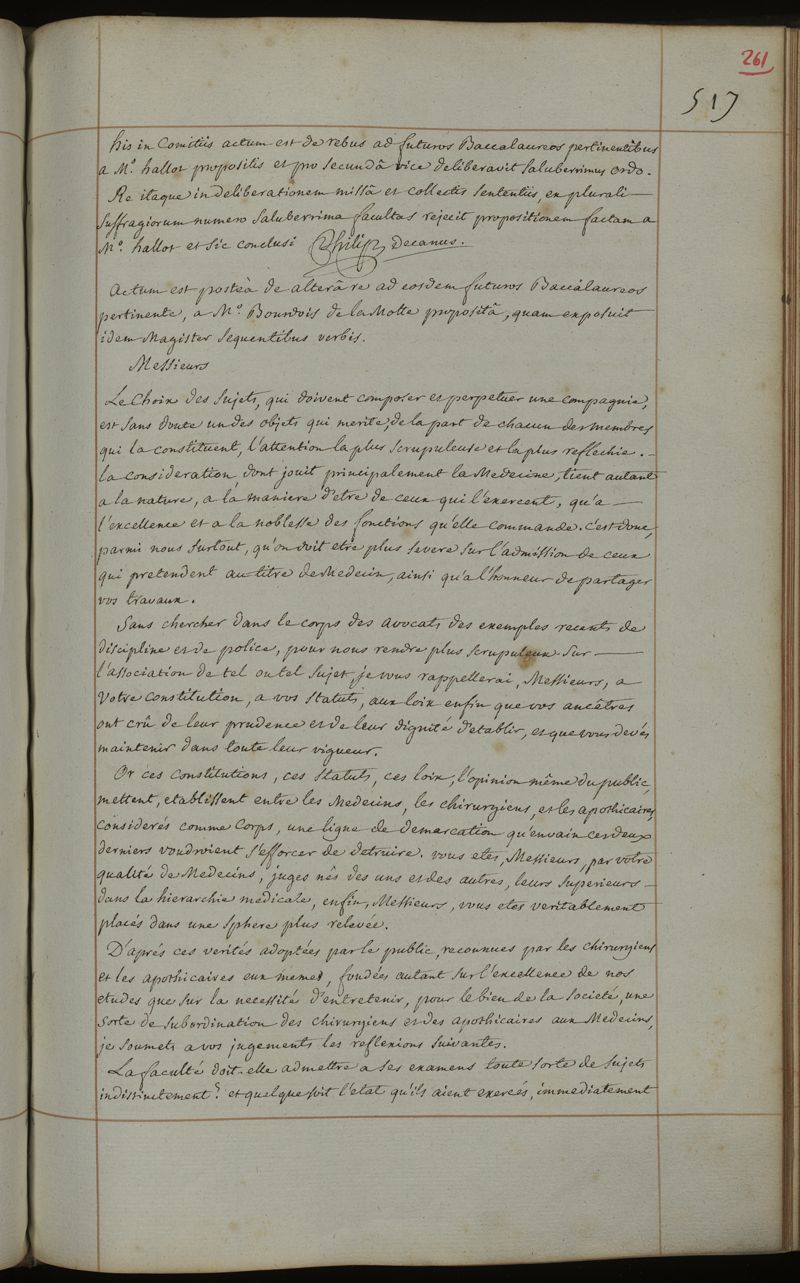 261
517
his in Comitiis actum est de rebus ad futuros Baccalaureos pertinentibus
a M.º hallot propositis et pro secundâ vice deliberavit saluberrimus ordo.
Re itaque in deliberationem missâ et collectis sententiis, ex plurali
suffragiorum numero saluberrima facultas rejecit propositionem factam a
M.º hallot et sic conclusi Philip Decanus.
Actum est posteà de alterâ re ad eosdem futuros Baccalaureos
pertinente, a M.º Bourdois de la Motte propositâ, quam exposuit
idem Magister sequentibus verbis.
Messieurs
Le Choix des sujets, qui doivent composer et perpetuer une compagnie,
est sans doute un des objets qui merite, de la part de chacun des membres
qui la constituent, l'attention la plus scrupuleuse et la plus reflechie.
la consideration, dont jouit principalement la Medecine, tient autant
a la nature, a la maniere d'etre de ceux qui l'exercent, qu'a
l'excellence et a la noblesse des fonctions qu'elle commande. c'est donc,
parmi nous surtout, qu'on doit etre plus severe sur l'admission de ceux
qui pretendent au titre de Medecin, ainsi qu'a l'honneur de partager
vos travaux.
Sans chercher dans le corps des avocats des exemples recents de
discipline et de police, pour nous rendre plus scrupuleux sur
l'association de tel ou tel sujet, je vous rappellerai, Messieurs, a
Votre constitution, a vos statuts, aux loix enfin que vos ancêtres
ont crû de leur prudence et de leur dignité d'etablir, et que vous devés
maintenir dans toute leur vigueur.
Or ces constitutions, ces statuts, ces loix, l'opinion même du public,
mettent, etablissent entre les Medecins, les chirurgiens, et les apothicaires
considerés comme Corps, une ligne de demarcation qu'envain ces deux
derniers voudroient s'efforcer de detruire. vous etes, Messieurs, par votre
qualité de Medecins, juges nés des uns et des autres, leurs superieurs
dans la hierarchie medicale, enfin, Messieurs, vous etes veritablement
placés dans une sphere plus relevée.
D'aprés ces verités adoptées par le public, reconnues par les chirurgiens
et les apothicaires eux memes, fondées autant sur l'excellence de nos
etudes que sur la necessité d'entretenir, pour le bien de la societé, une
sorte de subordination des chirurgiens et des apothicaires aux Medecins,
je soumets a vos jugements les reflexions suivantes.
La faculté doit-elle admettre a ses examens toute sorte de sujets
indistinctement? et quelque soit l'etat qu'ils aient exercés, immediatement